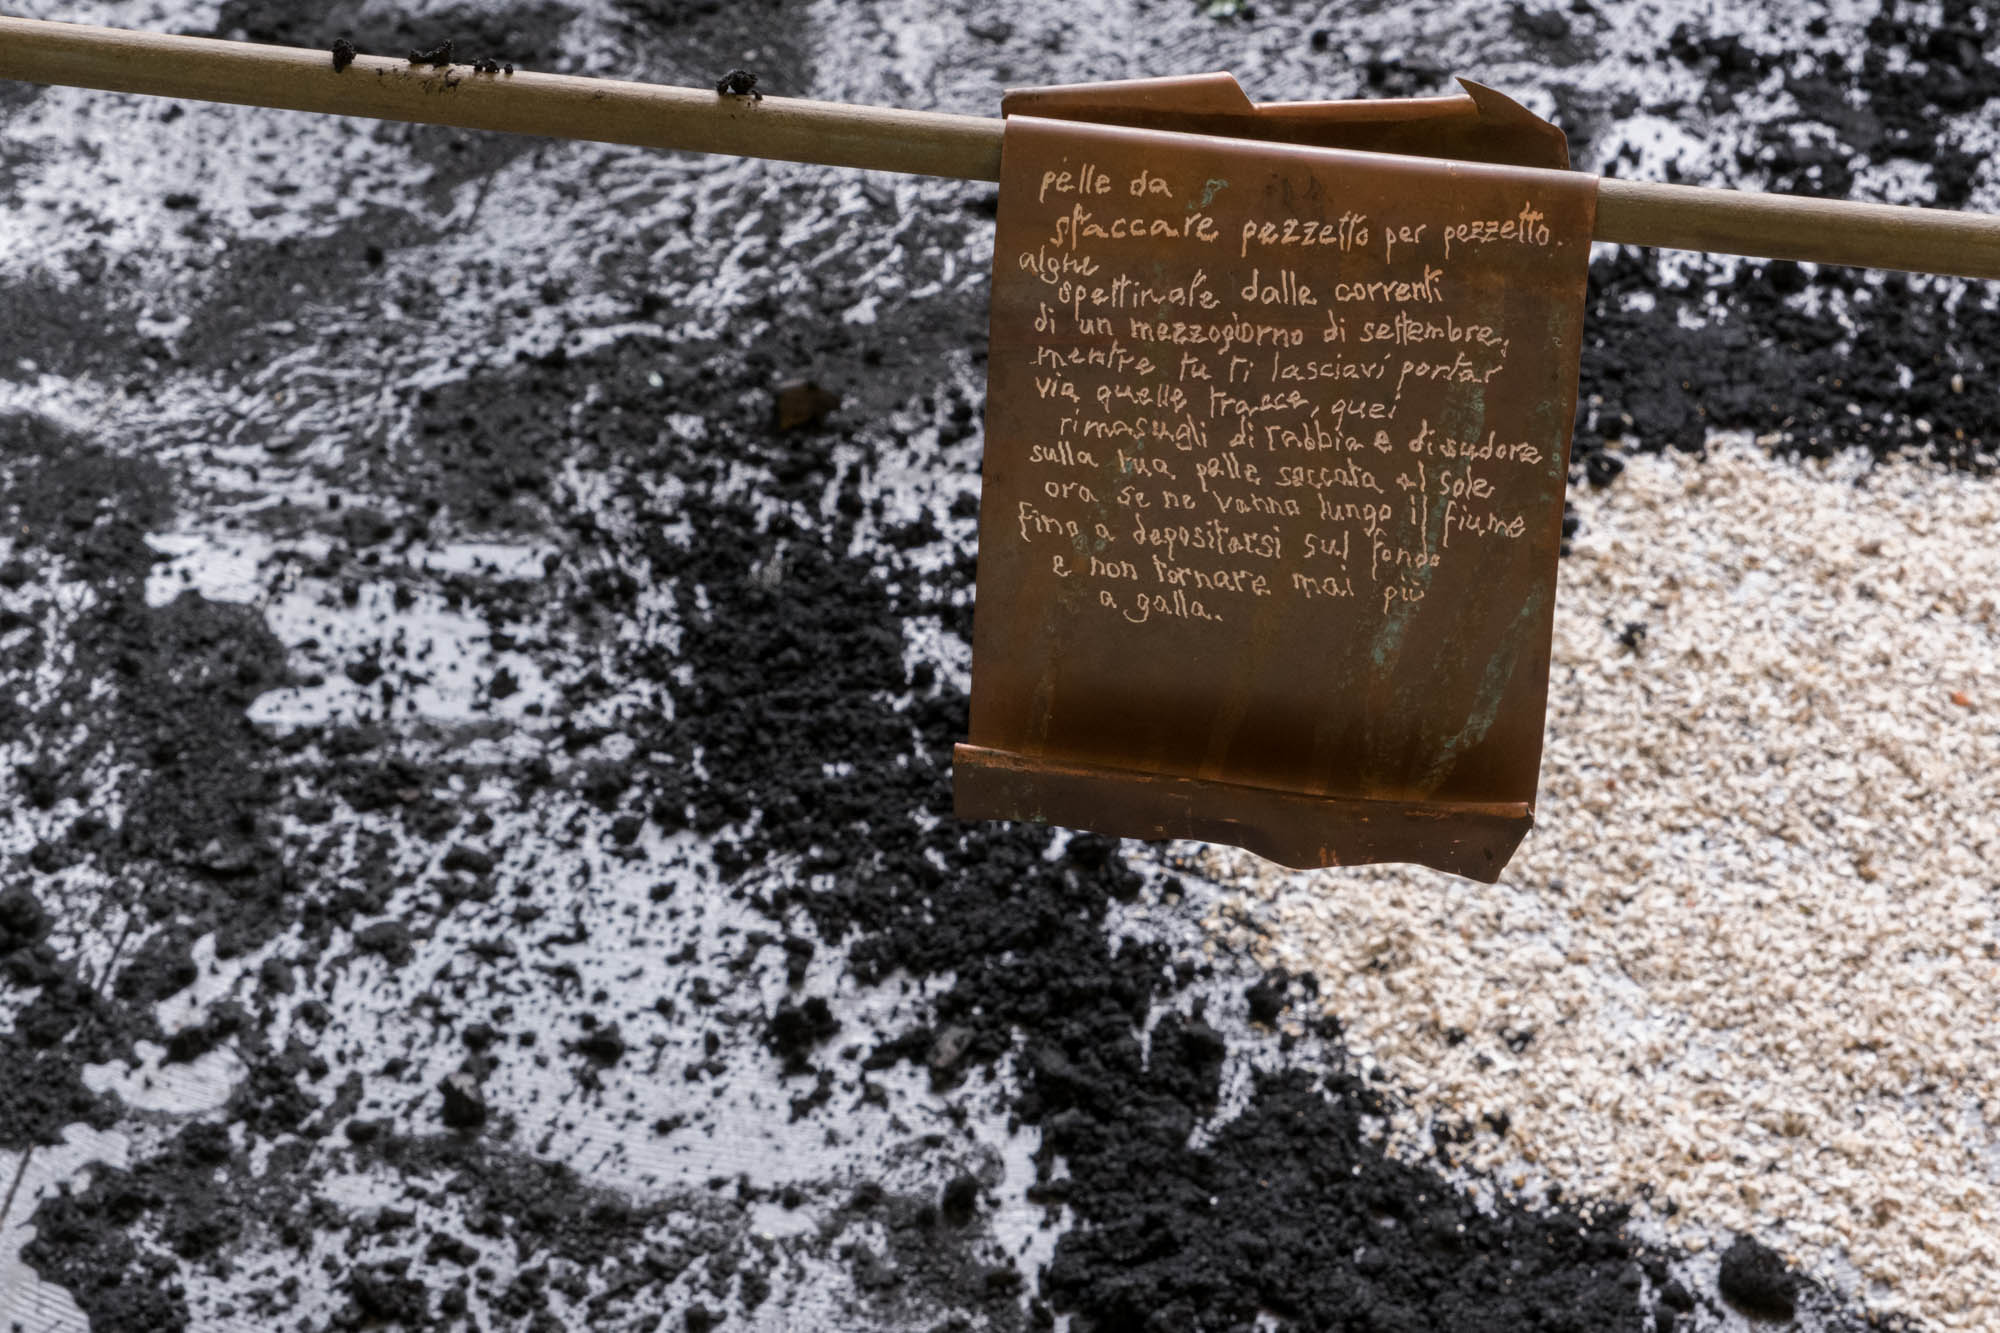 pelle da
staccare pezzetto per pezzetto.
alghe
spettinate dalle correnti
di un mezzogiorno di settembre,
mentre tu ti lasciavi portar
via quelle tracce, quei
rimasugli di rabbia e di sudore
sulla tua pelle seccata al sole
ora se ne vanno lungo il fiume
fino a depositarsi sul fondo
e non tornare mai più
a galla.